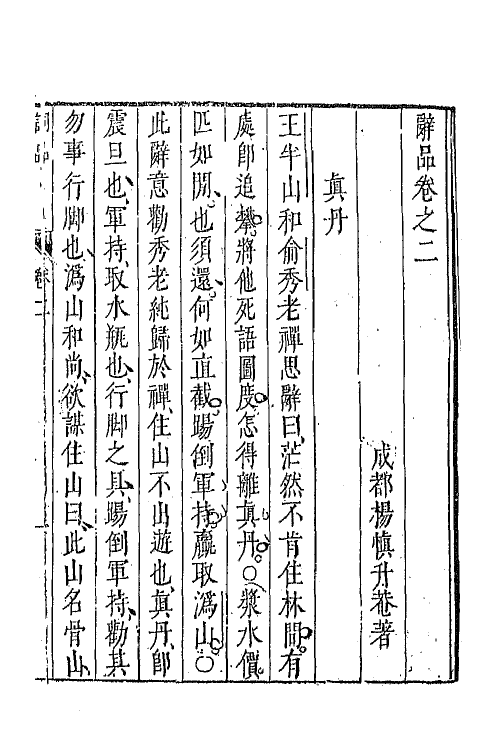 辭品卷之二
成都楊慎升菴著
真丹
王半山和俞秀老禪思辭曰茫然不肯住林間有
處卽追攀將他死語圖度怎得離真丹〇漿水價
匹如閒也須還何如直截踢倒軍持贏取潙山〇
此辭意勸秀老純歸於禪住山不出遊也真丹卽
震旦也軍持取水瓶也行脚之具踢倒軍持勸其
勿事行脚也潙山和尚欲謀住山曰此山名骨山